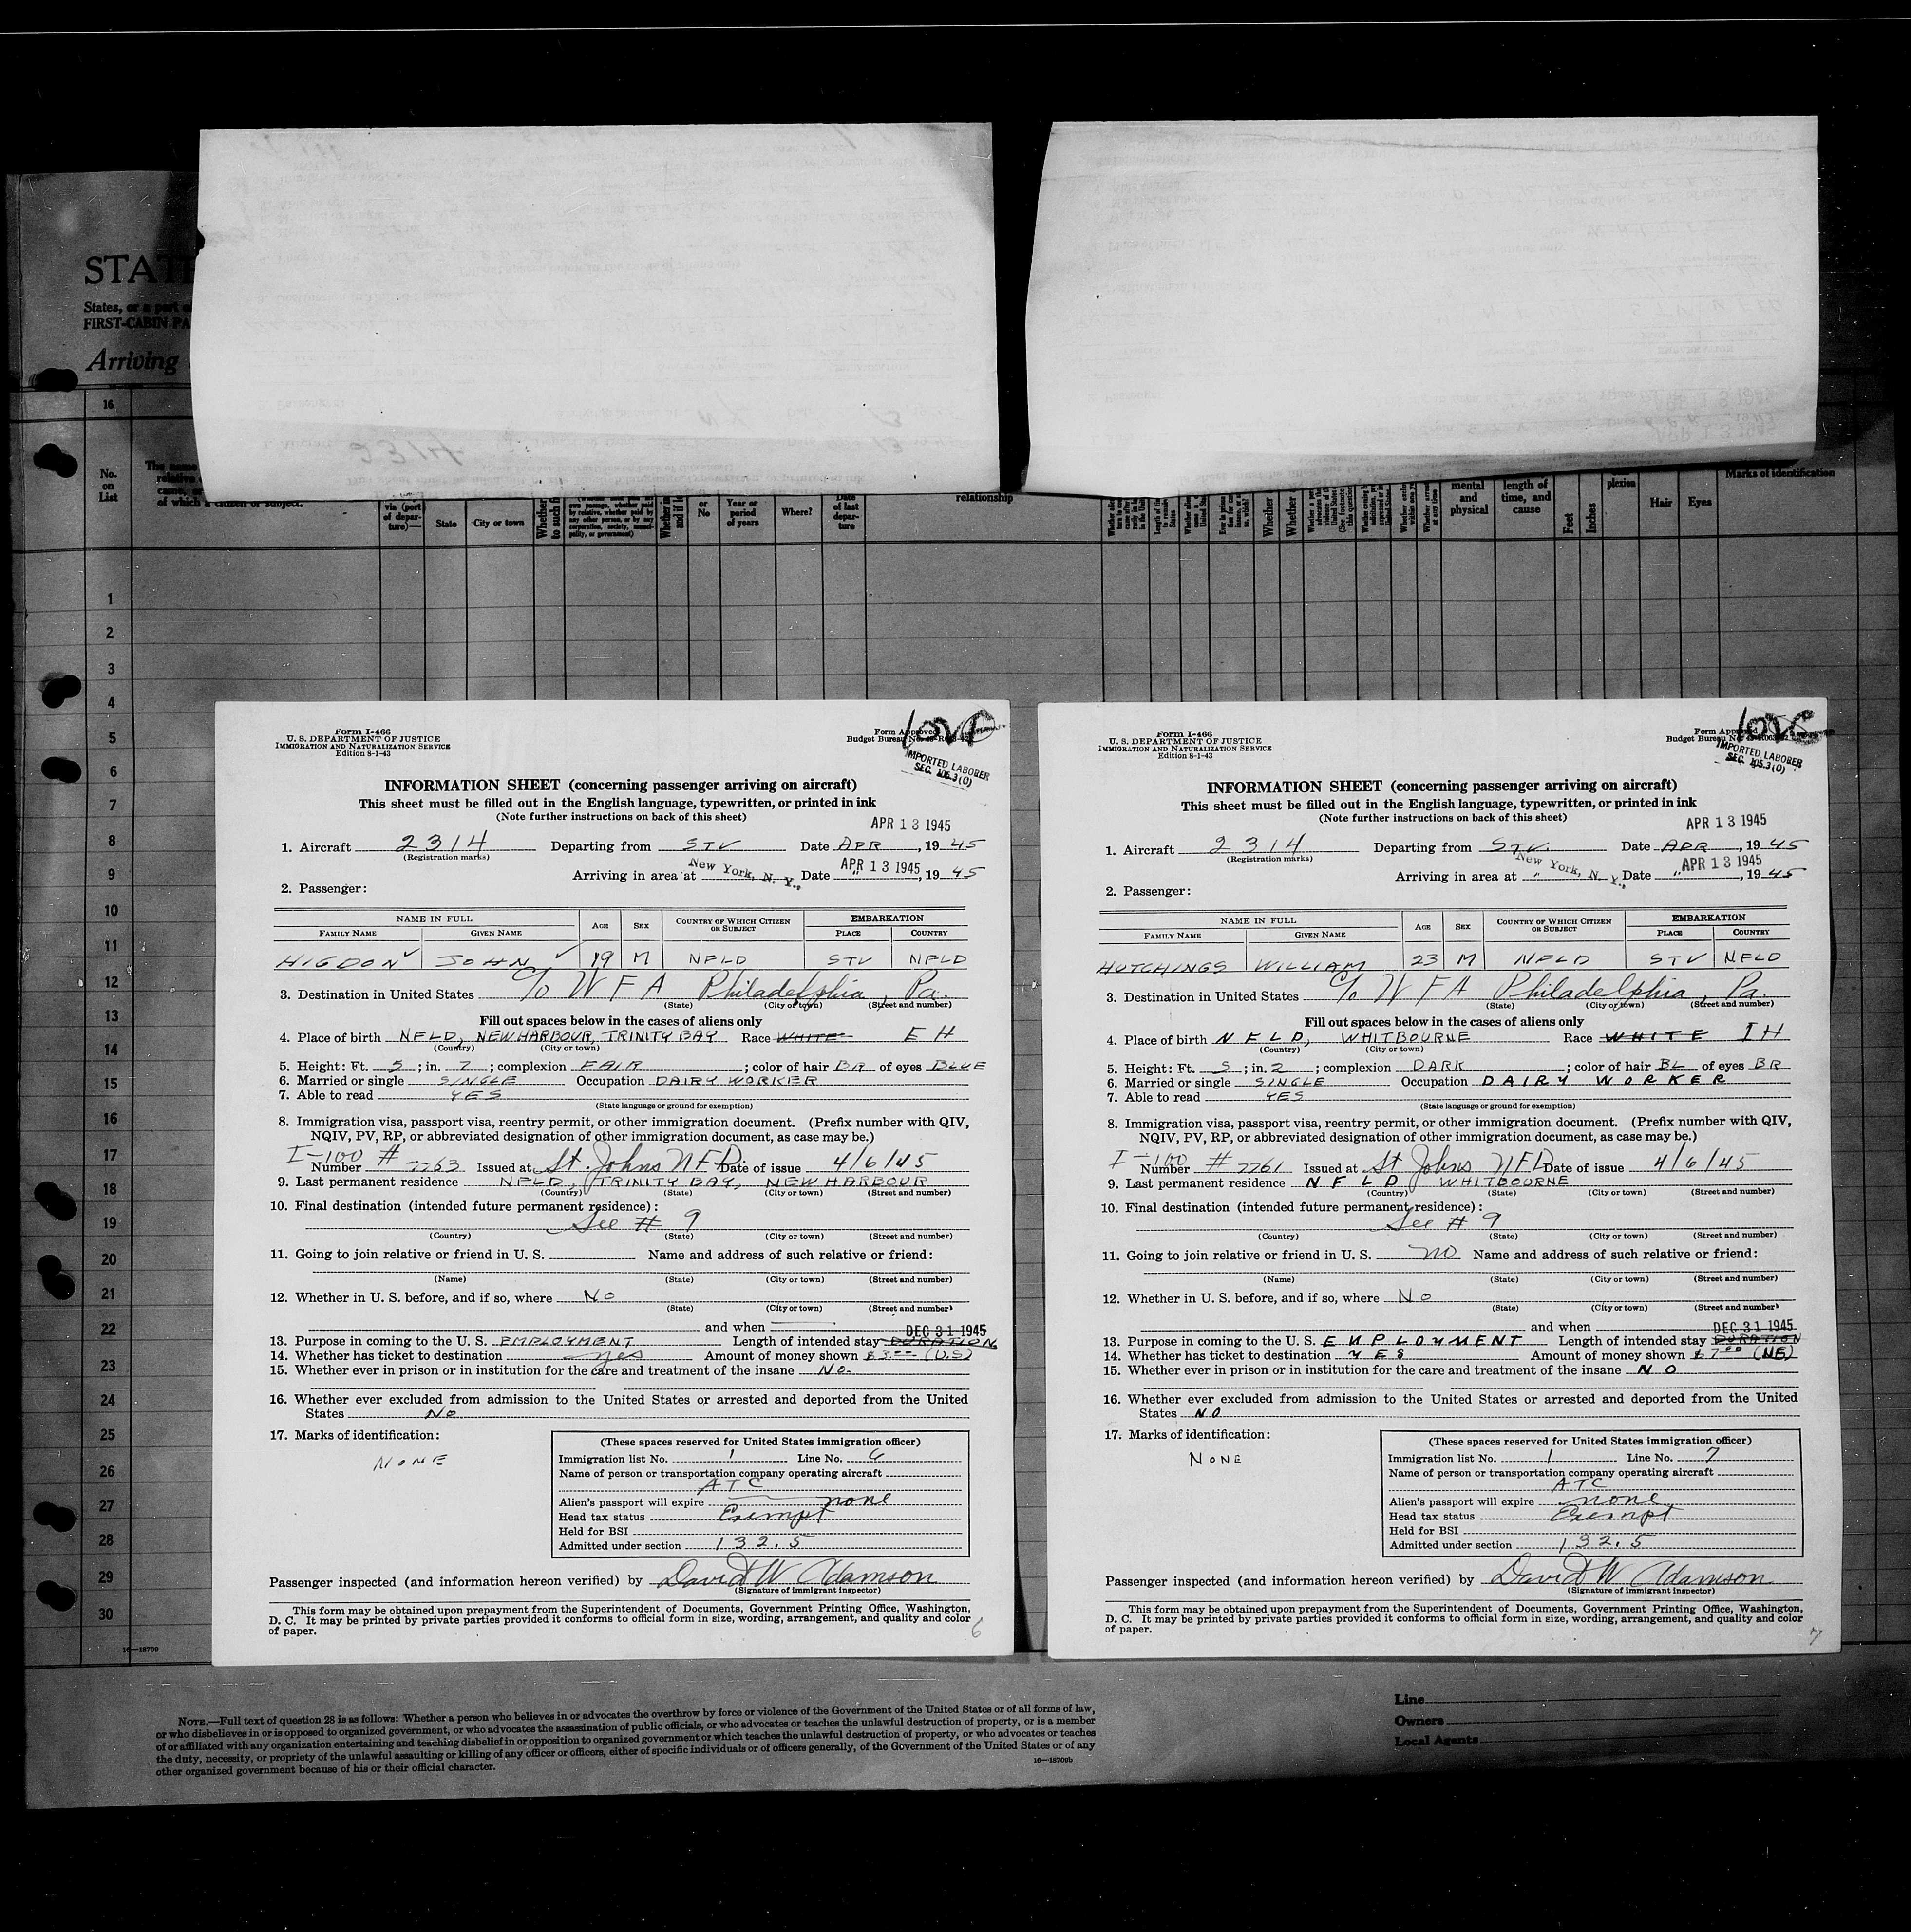 STATE
States, or a part o
FIRST-CABIN PA
Arriving
16
No. on List
The name
relative
came, or
of which a citizen or subject.
via (port of departure)—
State
City or town
Whether
to such f
own passage, whether paid by relative, whether paid by any other person, or by any corporation, society, municipality, or government)
Whether in
and if l
or No
Year or period of years
Where?
Date of last departure
relationship
Whether
Whether
mental and physical
length of time, and cause
Feet
Inches
plexion
Hair
Eyes
Marks of identification
1
2
3
4
5
6
7
8
9
10
11
12
13
14
15
16
17
18
19
20
21
22
23
24
25
26
27
28
29
30
16—18709
Form I-466
U. S. DEPARTMENT OF JUSTICE
IMMIGRATION AND NATURALIZATION SERVICE
Edition 8-1-43
Form Approved
Budget Bureau No.
IMPORTED LABORER
SEC. 105.3(O)
INFORMATION SHEET (concerning passenger arriving on aircraft)
This sheet must be filled out in the English language, typewritten, or printed in ink
(Note further instructions on back of this sheet)
APR 13 1945
1. Aircraft 2314 Departing from STV Date APR, 19 45
(Registration marks)
New York, N. Y., APR 13 1945
Arriving in area at Date ", 19 45
2. Passenger:
NAME IN FULL AGE SEX COUNTRY OF WHICH CITIZEN OR SUBJECT EMBARKATION
FAMILY NAME GIVEN NAME PLACE COUNTRY
HIGDON JOHN 19 M NFLD STV NFLD
3. Destination in United States C/o W F A Philadelphia, Pa.
(State) (City or town) (Street and number)
Fill out spaces below in the cases of aliens only
4. Place of birth NFLD, NEW HARBOUR, TRINITY BAY Race WHITE E H
(Country) (City or town)
5. Height: Ft. 5; in. 7; complexion FAIR; color of hair BR of eyes BLUE
6. Married or single SINGLE Occupation DAIRY WORKER
7. Able to read YES
(State language or ground for exemption)
8. Immigration visa, passport visa, reentry permit, or other immigration document. (Prefix number with QIV,
NQIV, PV, RP, or abbreviated designation of other immigration document, as case may be.)
I-100
Number # 7763 Issued at St. Johns NFD. Date of issue 4/6/45
9. Last permanent residence NFLD, TRINITY BAY, NEW HARBOUR
(Country) (State) (City or town) (Street and number)
10. Final destination (intended future permanent residence):
See # 9
(Country) (State) (City or town) (Street and number)
11. Going to join relative or friend in U. S. Name and address of such relative or friend:
(Name) (State) (City or town) (Street and number)
12. Whether in U. S. before, and if so, where No
(State) (City or town) (Street and number)
and when DEC 31 1945
13. Purpose in coming to the U. S. EMPLOYMENT Length of intended stay DURATION
14. Whether has ticket to destination yes Amount of money shown $3.00 (U.S)
15. Whether ever in prison or in institution for the care and treatment of the insane No.
16. Whether ever excluded from admission to the United States or arrested and deported from the United
States No
17. Marks of identification:
NONE
(These spaces reserved for United States immigration officer)
Immigration list No. 1 Line No. 6
Name of person or transportation company operating aircraft
ATC
Alien's passport will expire none
Head tax status Exempt
Held for BSI
Admitted under section 132.5
Passenger inspected (and information hereon verified) by David W Adamson
(Signature of immigrant inspector)
This form may be obtained upon prepayment from the Superintendent of Documents, Government Printing Office, Washington,
D. C. It may be printed by private parties provided it conforms to official form in size, wording, arrangement, and quality and color
of paper.
6
Form I-466
U. S. DEPARTMENT OF JUSTICE
IMMIGRATION AND NATURALIZATION SERVICE
Edition 8-1-43
Form Approved
Budget Bureau No.
IMPORTED LABORER
SEC. 105.3(O)
INFORMATION SHEET (concerning passenger arriving on aircraft)
This sheet must be filled out in the English language, typewritten, or printed in ink
(Note further instructions on back of this sheet)
APR 13 1945
1. Aircraft 2314 Departing from STV Date APR, 19 45
(Registration marks)
New York, N. Y., APR 13 1945
Arriving in area at " Date ", 19 45
2. Passenger:
NAME IN FULL AGE SEX COUNTRY OF WHICH CITIZEN OR SUBJECT EMBARKATION
FAMILY NAME GIVEN NAME PLACE COUNTRY
HUTCHINGS WILLIAM 23 M NFLD STV NFLD
3. Destination in United States C/o W F A Philadelphia, Pa.
(State) (City or town) (Street and number)
Fill out spaces below in the cases of aliens only
4. Place of birth NFLD, WHITBOURNE Race WHITE IH
(Country) (City or town)
5. Height: Ft. 5; in. 2; complexion DARK; color of hair BL of eyes BR
6. Married or single SINGLE Occupation DAIRY WORKER
7. Able to read YES
(State language or ground for exemption)
8. Immigration visa, passport visa, reentry permit, or other immigration document. (Prefix number with QIV,
NQIV, PV, RP, or abbreviated designation of other immigration document, as case may be.)
I-100
Number # 7761 Issued at St Johns NFD Date of issue 4/6/45
9. Last permanent residence NFLD WHITBOURNE
(Country) (State) (City or town) (Street and number)
10. Final destination (intended future permanent residence):
See # 9
(Country) (State) (City or town) (Street and number)
11. Going to join relative or friend in U. S. no Name and address of such relative or friend:
(Name) (State) (City or town) (Street and number)
12. Whether in U. S. before, and if so, where No
(State) (City or town) (Street and number)
and when DEC 31 1945
13. Purpose in coming to the U. S. EMPLOYMENT Length of intended stay DURATION
14. Whether has ticket to destination YES Amount of money shown $7.00 (NF)
15. Whether ever in prison or in institution for the care and treatment of the insane NO
16. Whether ever excluded from admission to the United States or arrested and deported from the United
States NO
17. Marks of identification:
NONE
(These spaces reserved for United States immigration officer)
Immigration list No. 1 Line No. 7
Name of person or transportation company operating aircraft
ATC
Alien's passport will expire none
Head tax status Exempt
Held for BSI
Admitted under section 132.5
Passenger inspected (and information hereon verified) by David W Adamson
(Signature of immigrant inspector)
This form may be obtained upon prepayment from the Superintendent of Documents, Government Printing Office, Washington,
D. C. It may be printed by private parties provided it conforms to official form in size, wording, arrangement, and quality and color
of paper.
7
NOTE.—Full text of question 28 is as follows: Whether a person who believes in or advocates the overthrow by force or violence of the Government of the United States or of all forms of law,
or who disbelieves in or is opposed to organized government, or who advocates the assassination of public officials, or who advocates or teaches the unlawful destruction of property, or is a member
of or affiliated with any organization entertaining and teaching disbelief in or opposition to organized government or which teaches the unlawful destruction of property, or who advocates or teaches
the duty, necessity, or propriety of the unlawful assaulting or killing of any officer or officers, either of specific individuals or of officers generally, of the Government of the United States or of any
other organized government because of his or their official character.
16—18709b
Line
Owners
Local Agents